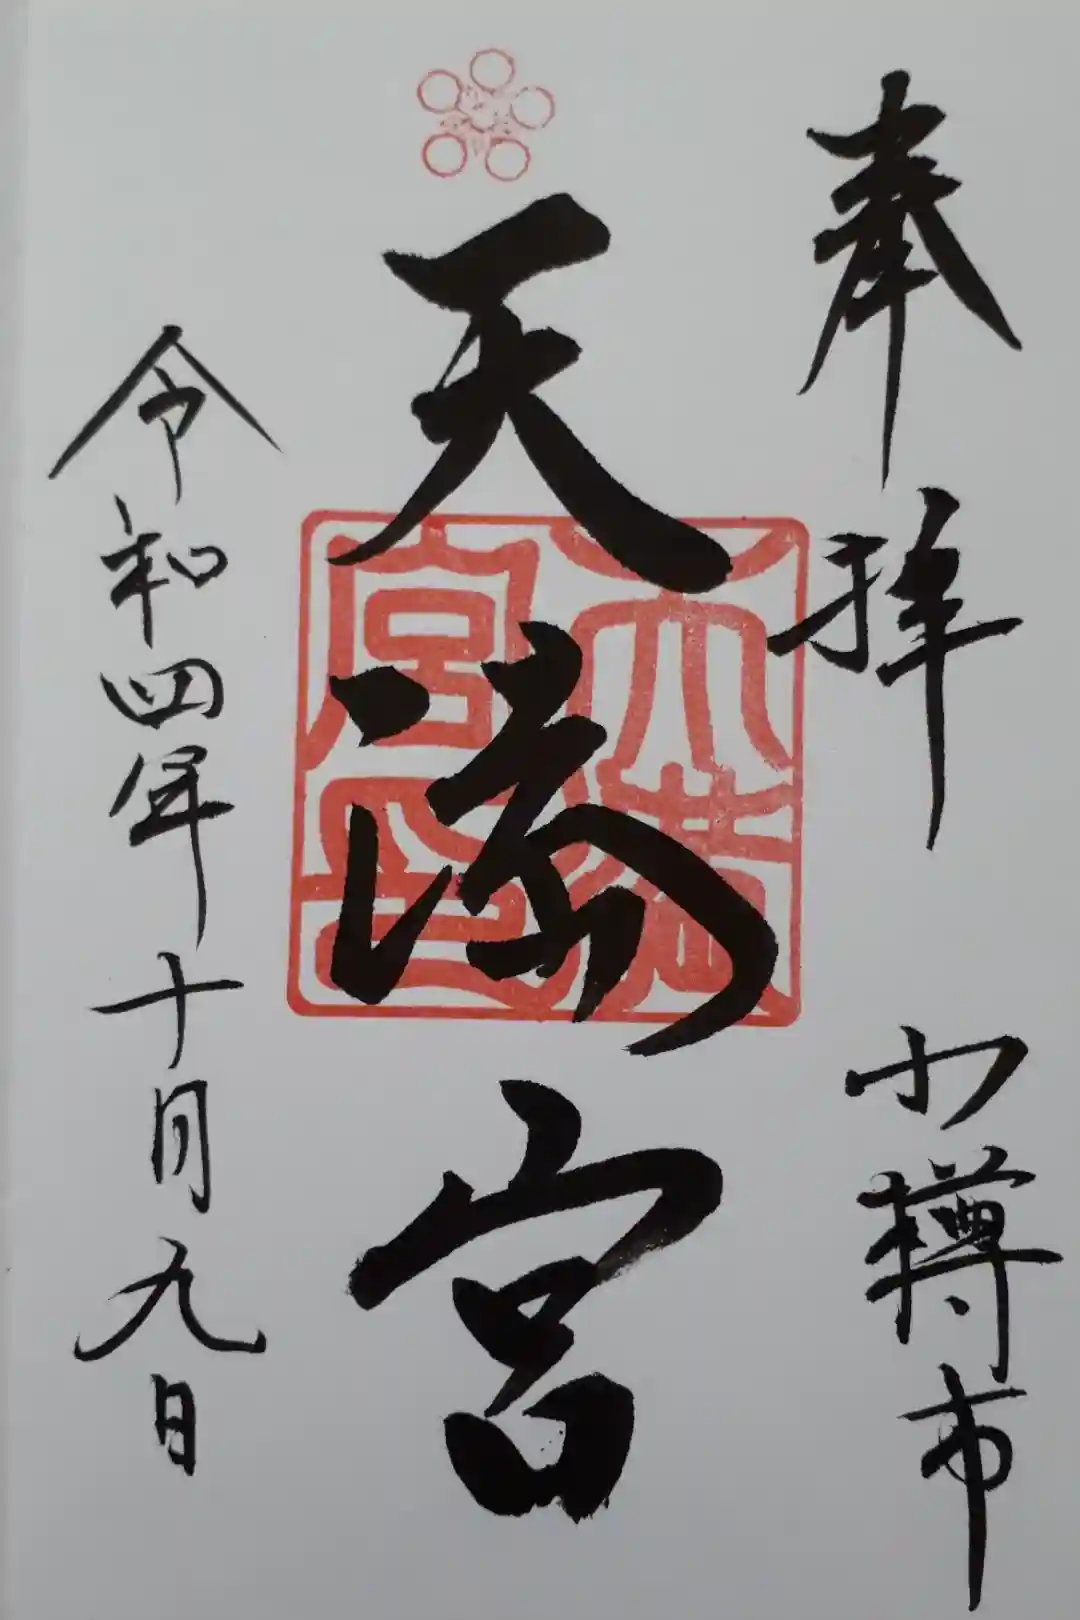 奉拝 小樽市
天満宮
天満宮印
令和四年十月九日